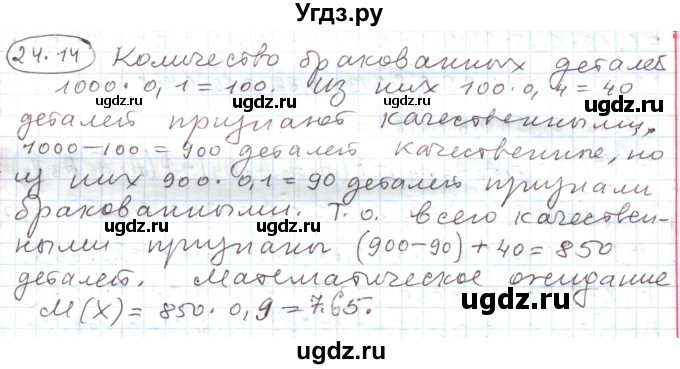 Угдз.ру
24.14 Количество бракованных деталей
1000·0,1=100. Из них 100·0,4=40
ugdz.ru ugdz.ru
деталей признают качественными,
1000-100=900 деталей качественные, но
ugdz.ru ugdz.ru
из них 900·0,1=90 деталей признали
бракованными. Т.о. всего качествен-
ugdz.ru ugdz.ru
ными признаны (900-90)+40=850
деталей. Математическое ожидание
ugdz.ru ugdz.ru
M(X)=850·0,9=765.
ugdz.ru